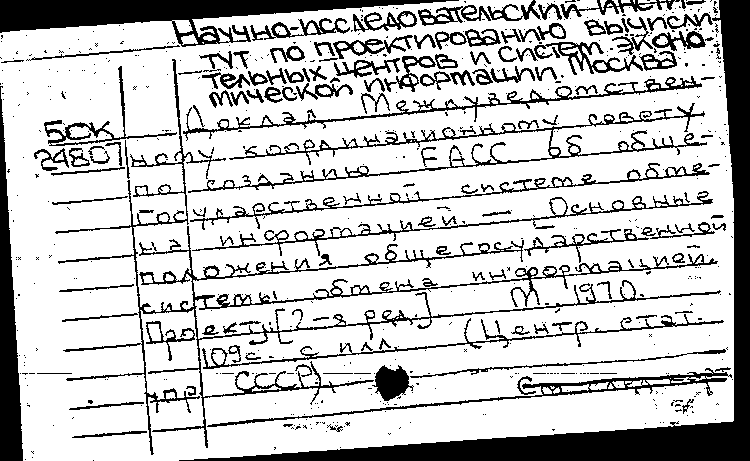 Научно-исследовательский инсти-
тут по проектированию вычисли-
тельных центров и систем эконо-
мической информации. Москва.
Доклад Междуведомствен-
БОК
24807 ному координационному совету
по созданию ЕАСС об обще-
государственной системе обме-
на информацией. — Основные
положения общегосударственной
системы обмена информацией.
Проект. [2-я ред.] М., 1970.
109с. с илл. (Центр. стат.
упр. СССР).
См. след. карт